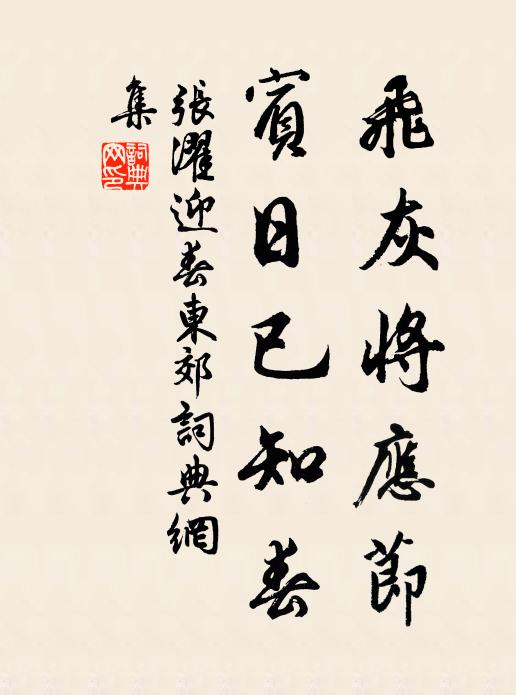 飛灰將應節
賓日已知春
張濯迎春東郊詞典網
集
詞典
网印